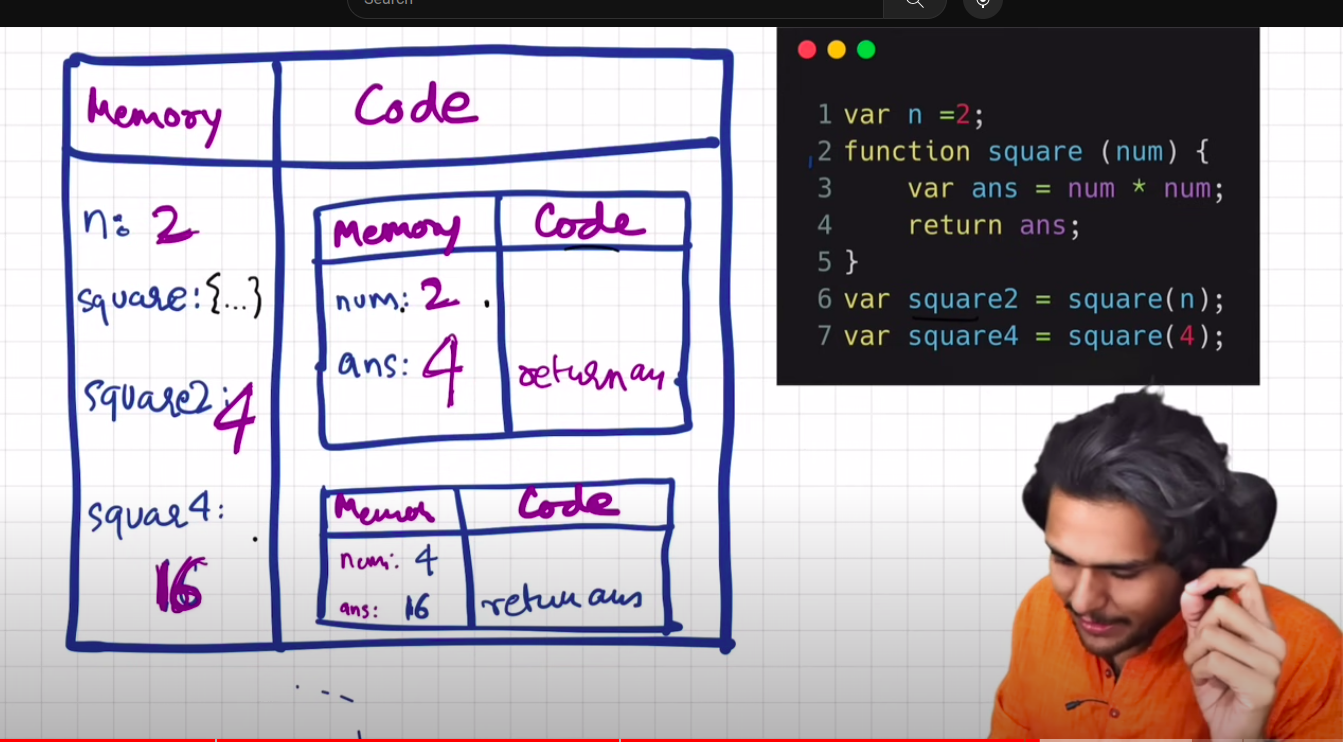 Search
Memory Code
n: 2
square: {...}
square2: 4
squar4:
16
Memory Code
num: 2
ans: 4
Code
num: 4
ans: 16
1 var n =2;
2 function square (num) {
3 var ans = num * num;
4 return ans;
5 }
6 var square2 = square(n);
7 var square4 = square(4);